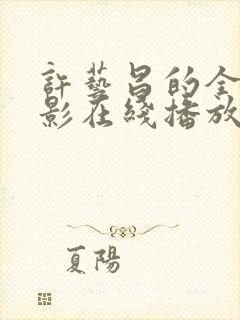 許藝昌的全
影在綫播放
夏陽